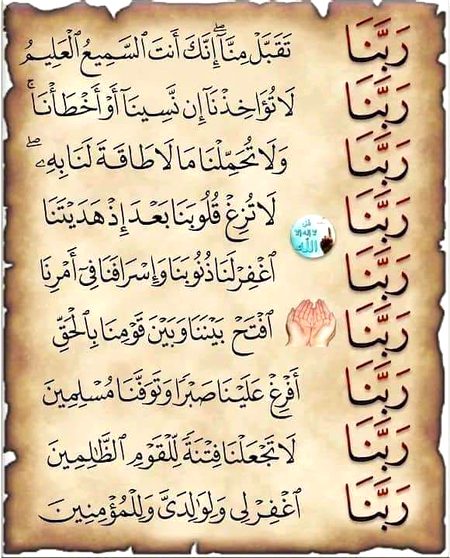 رَبَّنَا تَقَبَّلْ مِنَّآ ۖ إِنَّكَ أَنتَ ٱلسَّمِيعُ ٱلْعَلِيمُ
رَبَّنَا لَا تُؤَاخِذْنَآ إِن نَّسِينَآ أَوْ أَخْطَأْنَا ۚ
رَبَّنَا وَلَا تُحَمِّلْنَا مَا لَا طَاقَةَ لَنَا بِهِۦ ۖ
رَبَّنَا لَا تُزِغْ قُلُوبَنَا بَعْدَ إِذْ هَدَيْتَنَا
رَبَّنَا ٱغْفِرْ لَنَا ذُنُوبَنَا وَإِسْرَافَنَا فِىٓ أَمْرِنَا
رَبَّنَا ٱفْتَحْ بَيْنَنَا وَبَيْنَ قَوْمِنَا بِٱلْحَقِّ
رَبَّنَا أَفْرِغْ عَلَيْنَا صَبْرًا وَتَوَفَّنَا مُسْلِمِينَ
رَبَّنَا لَا تَجْعَلْنَا فِتْنَةً لِّلْقَوْمِ ٱلظَّٰلِمِينَ
رَبَّنَا ٱغْفِرْ لِى وَلِوَٰلِدَىَّ وَلِلْمُؤْمِنِينَ
لا إله إلا
الله